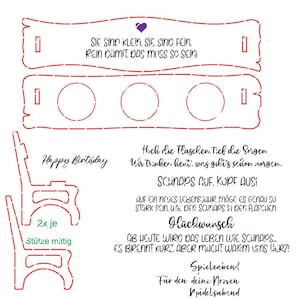 SIE SIND KLEIN, SIE SIND FEIN.
REIN DAMIT, DAS MUSS SO SEIN!
Happy Birthday
Hoch die Flaschen, Tief die Sorgen,
Wir trinken heut, was geht's schon morgen...
SCHNAPS AUF, KOPF AUS!
AUF EIN NEUES LEBENSJAHR MÖGE ES GENAU SO
STARK SEIN, WIE DER SCHNAPS IN DEN FLASCHEN
Glückwunsch
AB HEUTE WIRD DAS LEBEN WIE SCHNAPS...
ES BRENNT KURZ, ABER MACHT WARM UMS HERZ!
2x je
Stütze mittig
Spieleabend
Für den deine Nerven
Mädelsabend